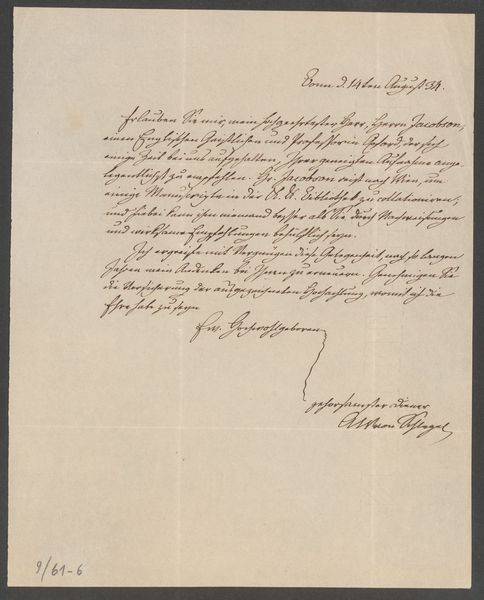 Bonn d. 14ten August 34.
Erlauben Sie mir, mein hochgeehrtester Herr, Herrn Jacobson,
einen Englischen Geistlichen und Professor in Oxford, der sich
einige Zeit bei uns aufgehalten, Ihrer geneigten Aufnahme ange-
legentlichst zu empfehlen. Hr. Jacobson reist nach Wien, um
einige Manuscripte in der K. K. Bibliothek zu collationiren;
und hiebei kann ihm niemand besser als Sie durch Nachweisungen
und wirksame Empfehlungen behülflich seyn.
Ich ergreife mit Vergnügen diese Gelegenheit, nach so langen
Jahren mein Andenken bei Ihnen zu erneuern. Genehmigen Sie
die Versicherung der ausgezeichneten Hochachtung, womit ich die
Ehre habe zu seyn
Ew. Hochwohlgeboren
gehorsamster Diener
AWvon Schlegel
9/61-6